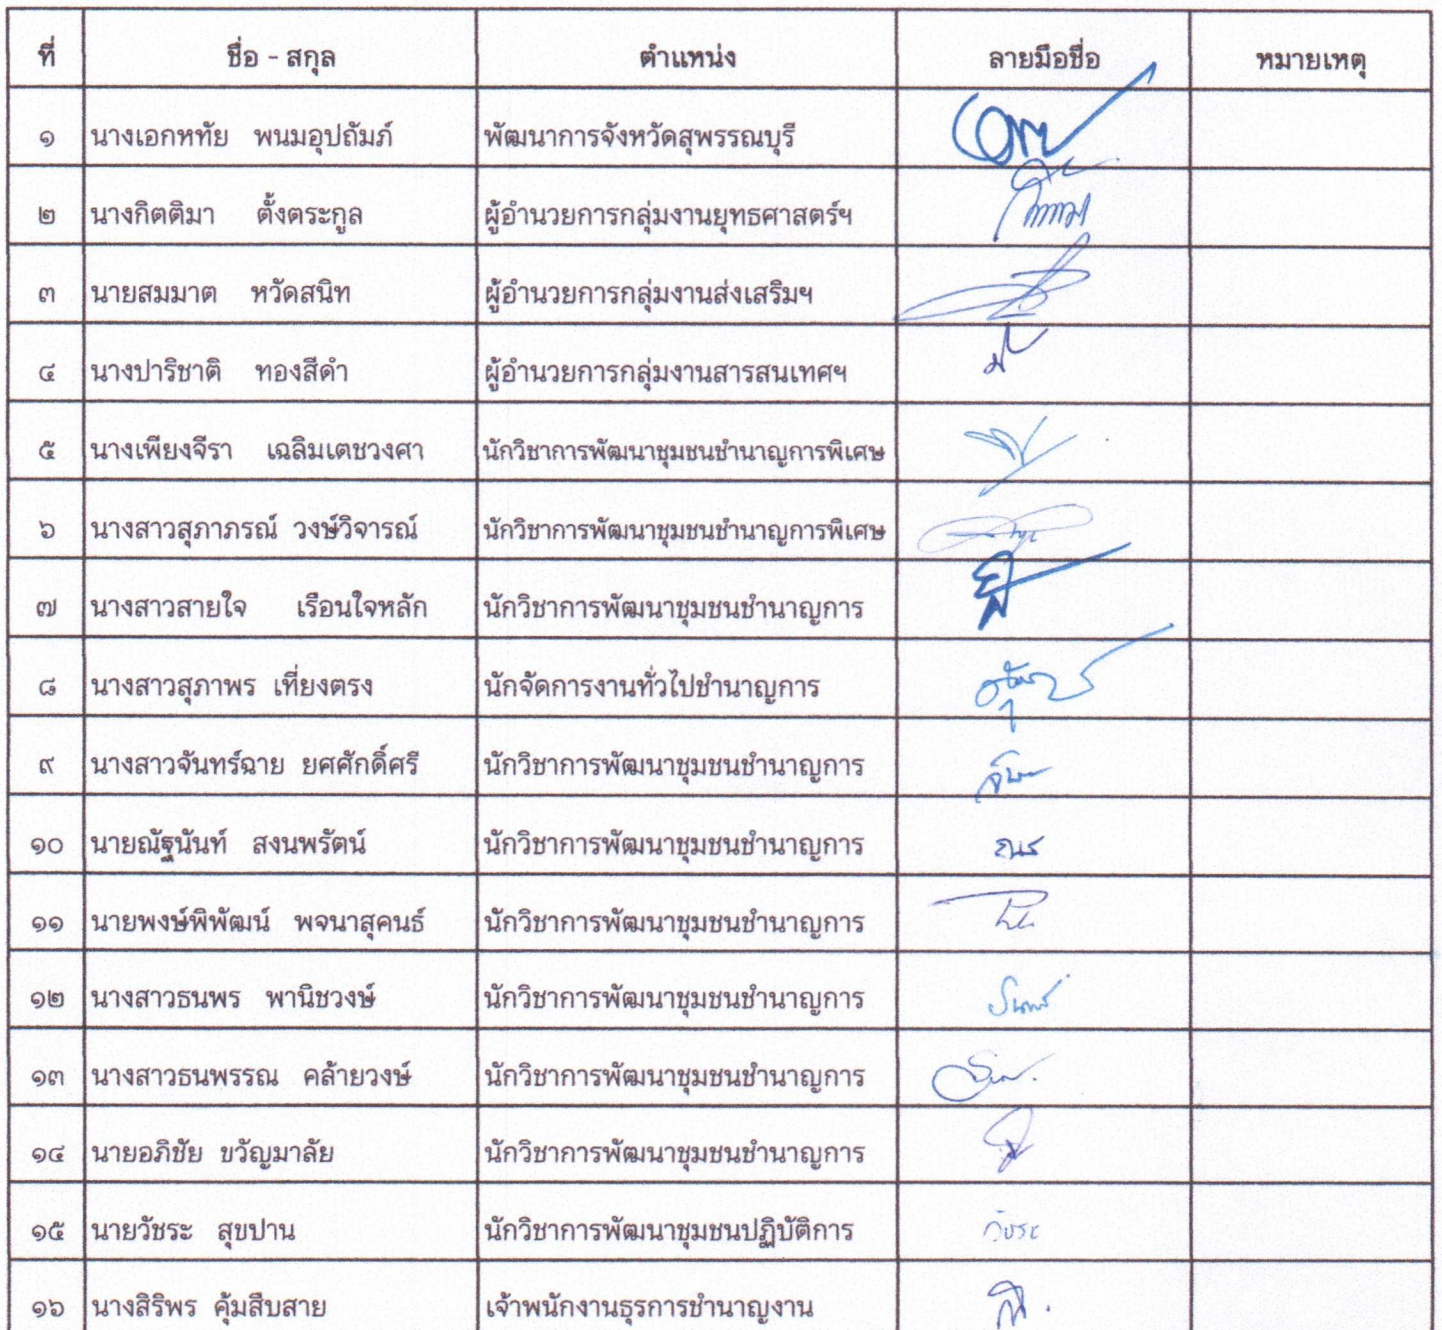 ที่ ชื่อ - สกุล ตำแหน่ง ลายมือชื่อ หมายเหตุ
๑ นางเอกหทัย พนมอุปถัมภ์ พัฒนาการจังหวัดสุพรรณบุรี
๒ นางกิตติมา ตั้งตระกูล ผู้อำนวยการกลุ่มงานยุทธศาสตร์ฯ
๓ นายสมมาต หวัดสนิท ผู้อำนวยการกลุ่มงานส่งเสริมฯ
๔ นางปาริชาติ ทองสีดำ ผู้อำนวยการกลุ่มงานสารสนเทศฯ
๕ นางเพียงจีรา เฉลิมเตชวงศา นักวิชาการพัฒนาชุมชนชำนาญการพิเศษ
๖ นางสาวสุภาภรณ์ วงษ์วิจารณ์ นักวิชาการพัฒนาชุมชนชำนาญการพิเศษ
๗ นางสาวสายใจ เรือนใจหลัก นักวิชาการพัฒนาชุมชนชำนาญการ
๘ นางสาวสุภาพร เที่ยงตรง นักจัดการงานทั่วไปชำนาญการ
๙ นางสาวจันทร์ฉาย ยศศักดิ์ศรี นักวิชาการพัฒนาชุมชนชำนาญการ
๑๐ นายณัฐนันท์ สงนพรัตน์ นักวิชาการพัฒนาชุมชนชำนาญการ
๑๑ นายพงษ์พิพัฒน์ พจนาสุคนธ์ นักวิชาการพัฒนาชุมชนชำนาญการ
๑๒ นางสาวธนพร พานิชวงษ์ นักวิชาการพัฒนาชุมชนชำนาญการ
๑๓ นางสาวธนพรรณ คล้ายวงษ์ นักวิชาการพัฒนาชุมชนชำนาญการ
๑๔ นายอภิชัย ขวัญมาลัย นักวิชาการพัฒนาชุมชนชำนาญการ
๑๕ นายวัชระ สุขปาน นักวิชาการพัฒนาชุมชนปฏิบัติการ วัชระ
๑๖ นางสิริพร คุ้มสืบสาย เจ้าพนักงานธุรการชำนาญงาน